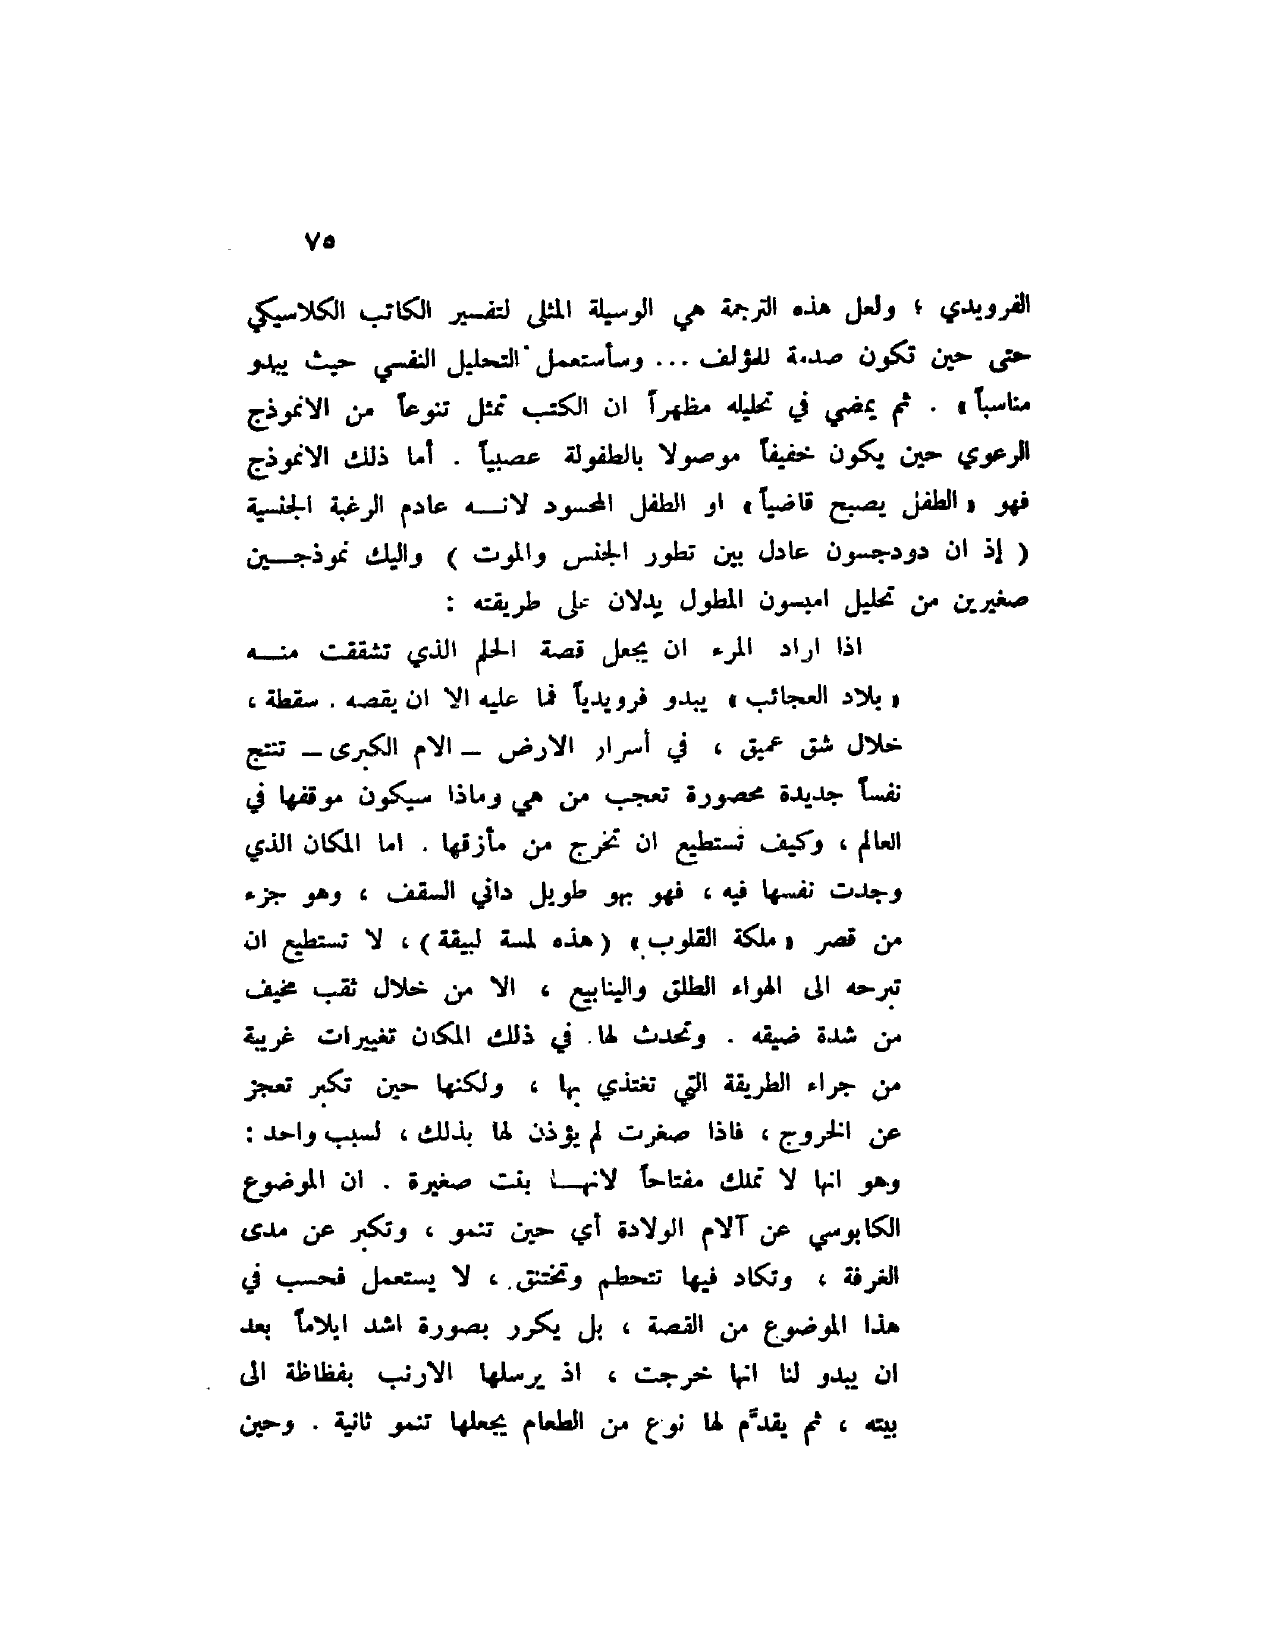 ٧٥
الفرويدي ؛ ولعل هذه الترجمة هي الوسيلة المثلى لتفسير الكاتب الكلاسيكي
حتى حين تكون صدمة للمؤلف ... وسأستعمل التحليل النفسي حيث يبدو
مناسباً » . ثم يمضي في تحليله مظهراً ان الكتب تمثل تنوعاً من الانموذج
الرعوي حين يكون خفيفاً موصولا بالطفولة عصبياً . أما ذلك الانموذج
فهو « الطفل يصبح قاضياً » او الطفل المحسود لانـــه عادم الرغبة الجنسية
( إذ ان دودجسون عادل بين تطور الجنس والموت ) واليك نموذجـــين
صغيرين من تحليل امبسون المطول يدلان على طريقته :
اذا اراد المرء ان يجعل قصة الحلم الذي تشققت منـــه
« بلاد العجائب » يبدو فرويدياً فما عليه الا ان يقصه . سقطة ،
خلال شق عميق ، في أسرار الارض – الام الكبرى – تنتج
نفساً جديدة محصورة تعجب من هي وماذا سيكون موقفها في
العالم ، وكيف تستطيع ان تخرج من مأزقها . اما المكان الذي
وجدت نفسها فيه ، فهو بهو طويل داني السقف ، وهو جزء
من قصر « ملكة القلوب » ( هذه لمسة لبيقة ) ، لا تستطيع ان
تبرحه الى الهواء الطلق والينابيع ، الا من خلال ثقب مخيف
من شدة ضيقه . وتحدث لها في ذلك المكان تغييرات غريبة
من جراء الطريقة التي تغتذي بها ، ولكنها حين تكبر تعجز
عن الخروج ، فاذا صغرت لم يؤذن لها بذلك ، لسبب واحد :
وهو انها لا تملك مفتاحاً لانهـــا بنت صغيرة . ان الموضوع
الكابوسي عن آلام الولادة أي حين تنمو ، وتكبر عن مدى
الغرفة ، وتكاد فيها تتحطم وتختنق ، لا يستعمل فحسب في
هذا الموضوع من القصة ، بل يكرر بصورة اشد ايلاماً بعد
ان يبدو لنا انها خرجت ، اذ يرسلها الارنب بفظاظة الى
بيته ، ثم يقدَّم لها نوع من الطعام يجعلها تنمو ثانية . وحين